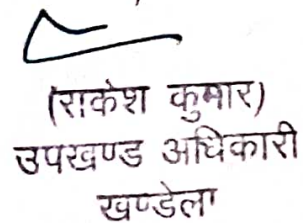 (राकेश कुमार)
उपखण्ड अधिकारी
खण्डेला